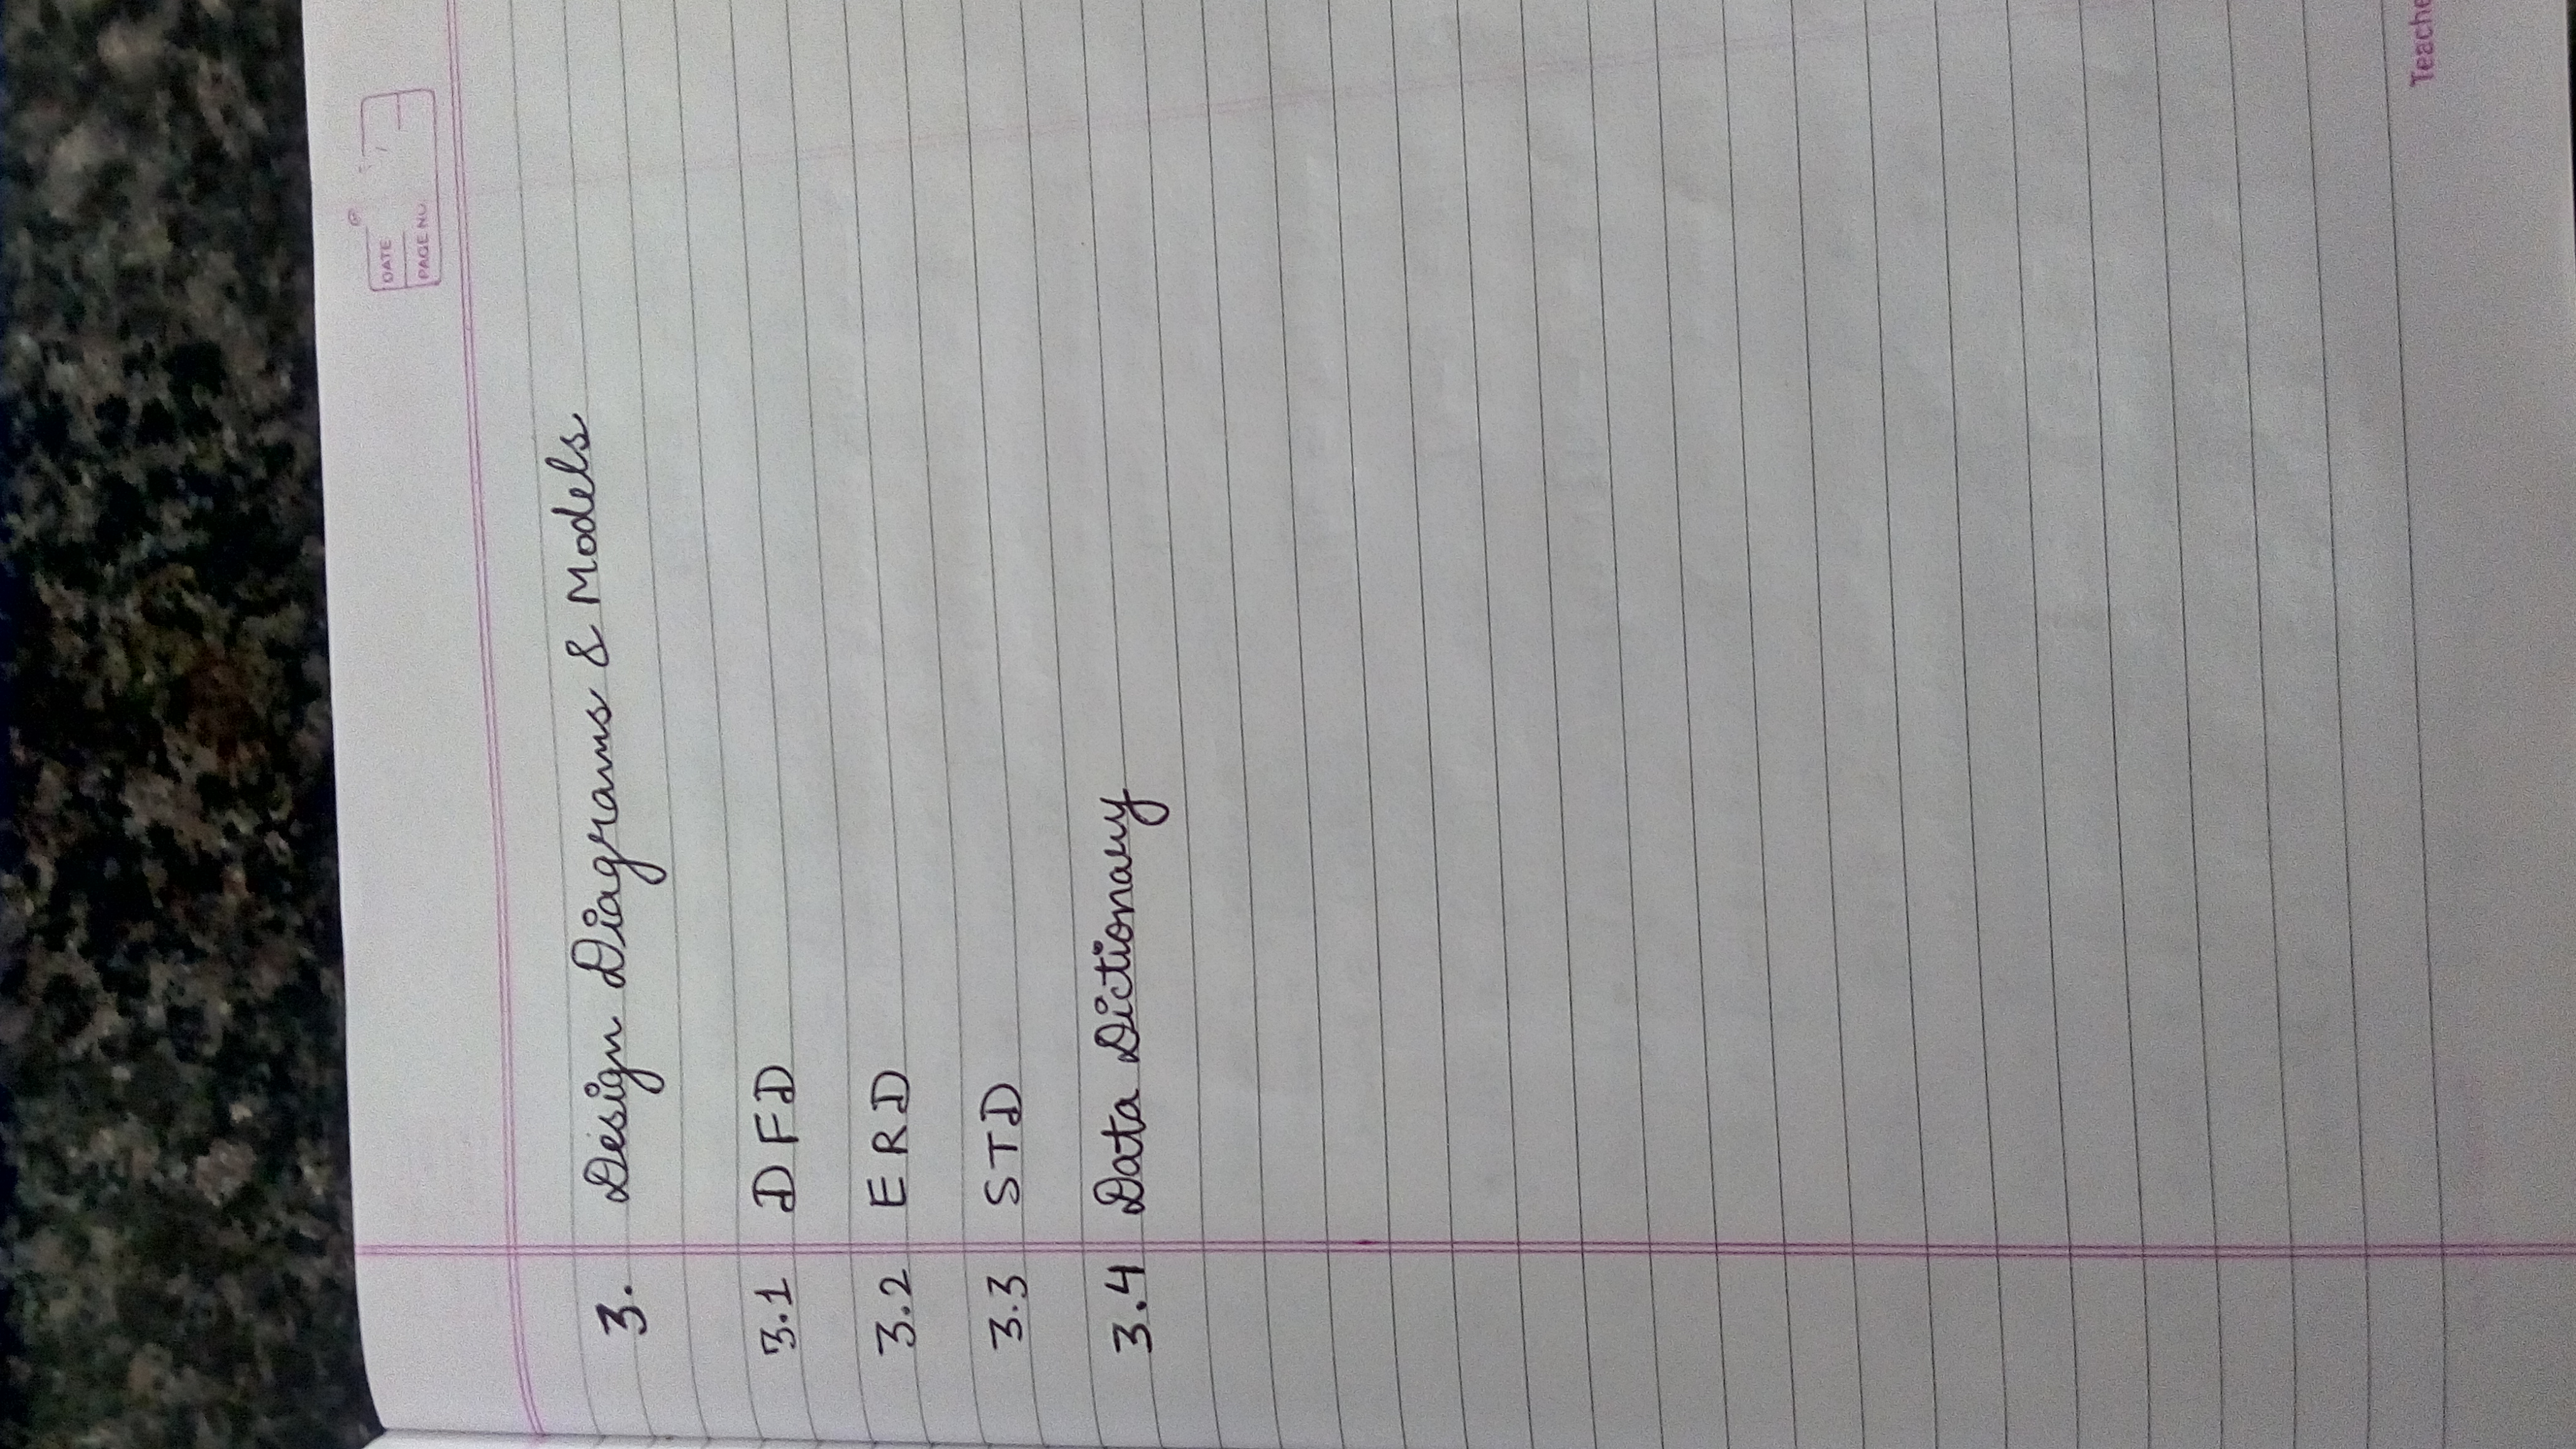 DATE
PAGE NO.
3. Design Diagrams & Models
3.1 DFD
3.2 ERD
3.3 STD
3.4 Data Dictionary